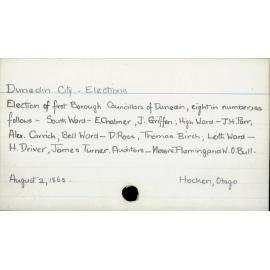 Dunedin City - Elections
Election of first Borough Councillors of Dunedin, eight in number, as
follows - South Ward - E. Chalmer, J. Griffen; High Ward - J.H. Parr,
Alex. Carrick; Bell Ward - D. Ross, Thomas Birch, Leith Ward -
H. Driver, James Turner. Auditors - Messrs Fleming and W.D. Bull.
August 2, 1865.
Hocken, Otago